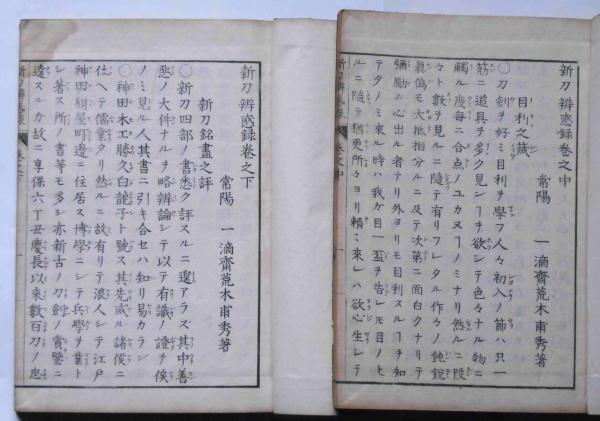 新刀辨惑録卷之中
常陽　一滴齋荒木甫秀著
目利之蔵
〇刀剣ヲ好ミ目利ヲ學フ人々初入ノ節ハ只一
筋ニ道具ヲ多ク見ンヿヲ欲シテ色々ナル物ニ
觸ル度毎ニ合点ノユカヌヿノミナリ然ルニ段
々ト數ヲ見ルニ隨テ有リフレタル作々ノ鈍鋭
真偽モ大抵相分ルニ及テ次第ニ面白クナリテ
彌勵ム心出ル者ナリ外ヨリモ目利スルヿヲ知
テタノミ來ル時ハ我カ目一盃ヲ告レモ目ノ上
ルニ隨テ猶更所々ヨリ頼ミ來レハ欲心生シテ
新刀辨惑録卷之下
常陽　一滴齋荒木甫秀著
新刀銘盡之評
〇新刀四部ノ書悉ク評スルニ遑アラス其中善
悪ノ大件ナルヲ略辨論シテ以テ有識ノ證ヲ俟
ノミ見ル人其書ニ引キ合セハ知リ易カラン
〇神田木工勝久白龍子ト號ス其先或ル諸侯ニ
仕ヘテ儒業タリ然ルニ故有リテ浪人シテ江戸
神田紺屋町邊ニ住居ス博學ニシテ兵學ヲ業ト
シ著ス所ノ書等モ多シ亦新古ノ刀劍ノ賞鑒ニ
達スルカ故ニ享保六丁丑慶長以來數百刀ノ忠